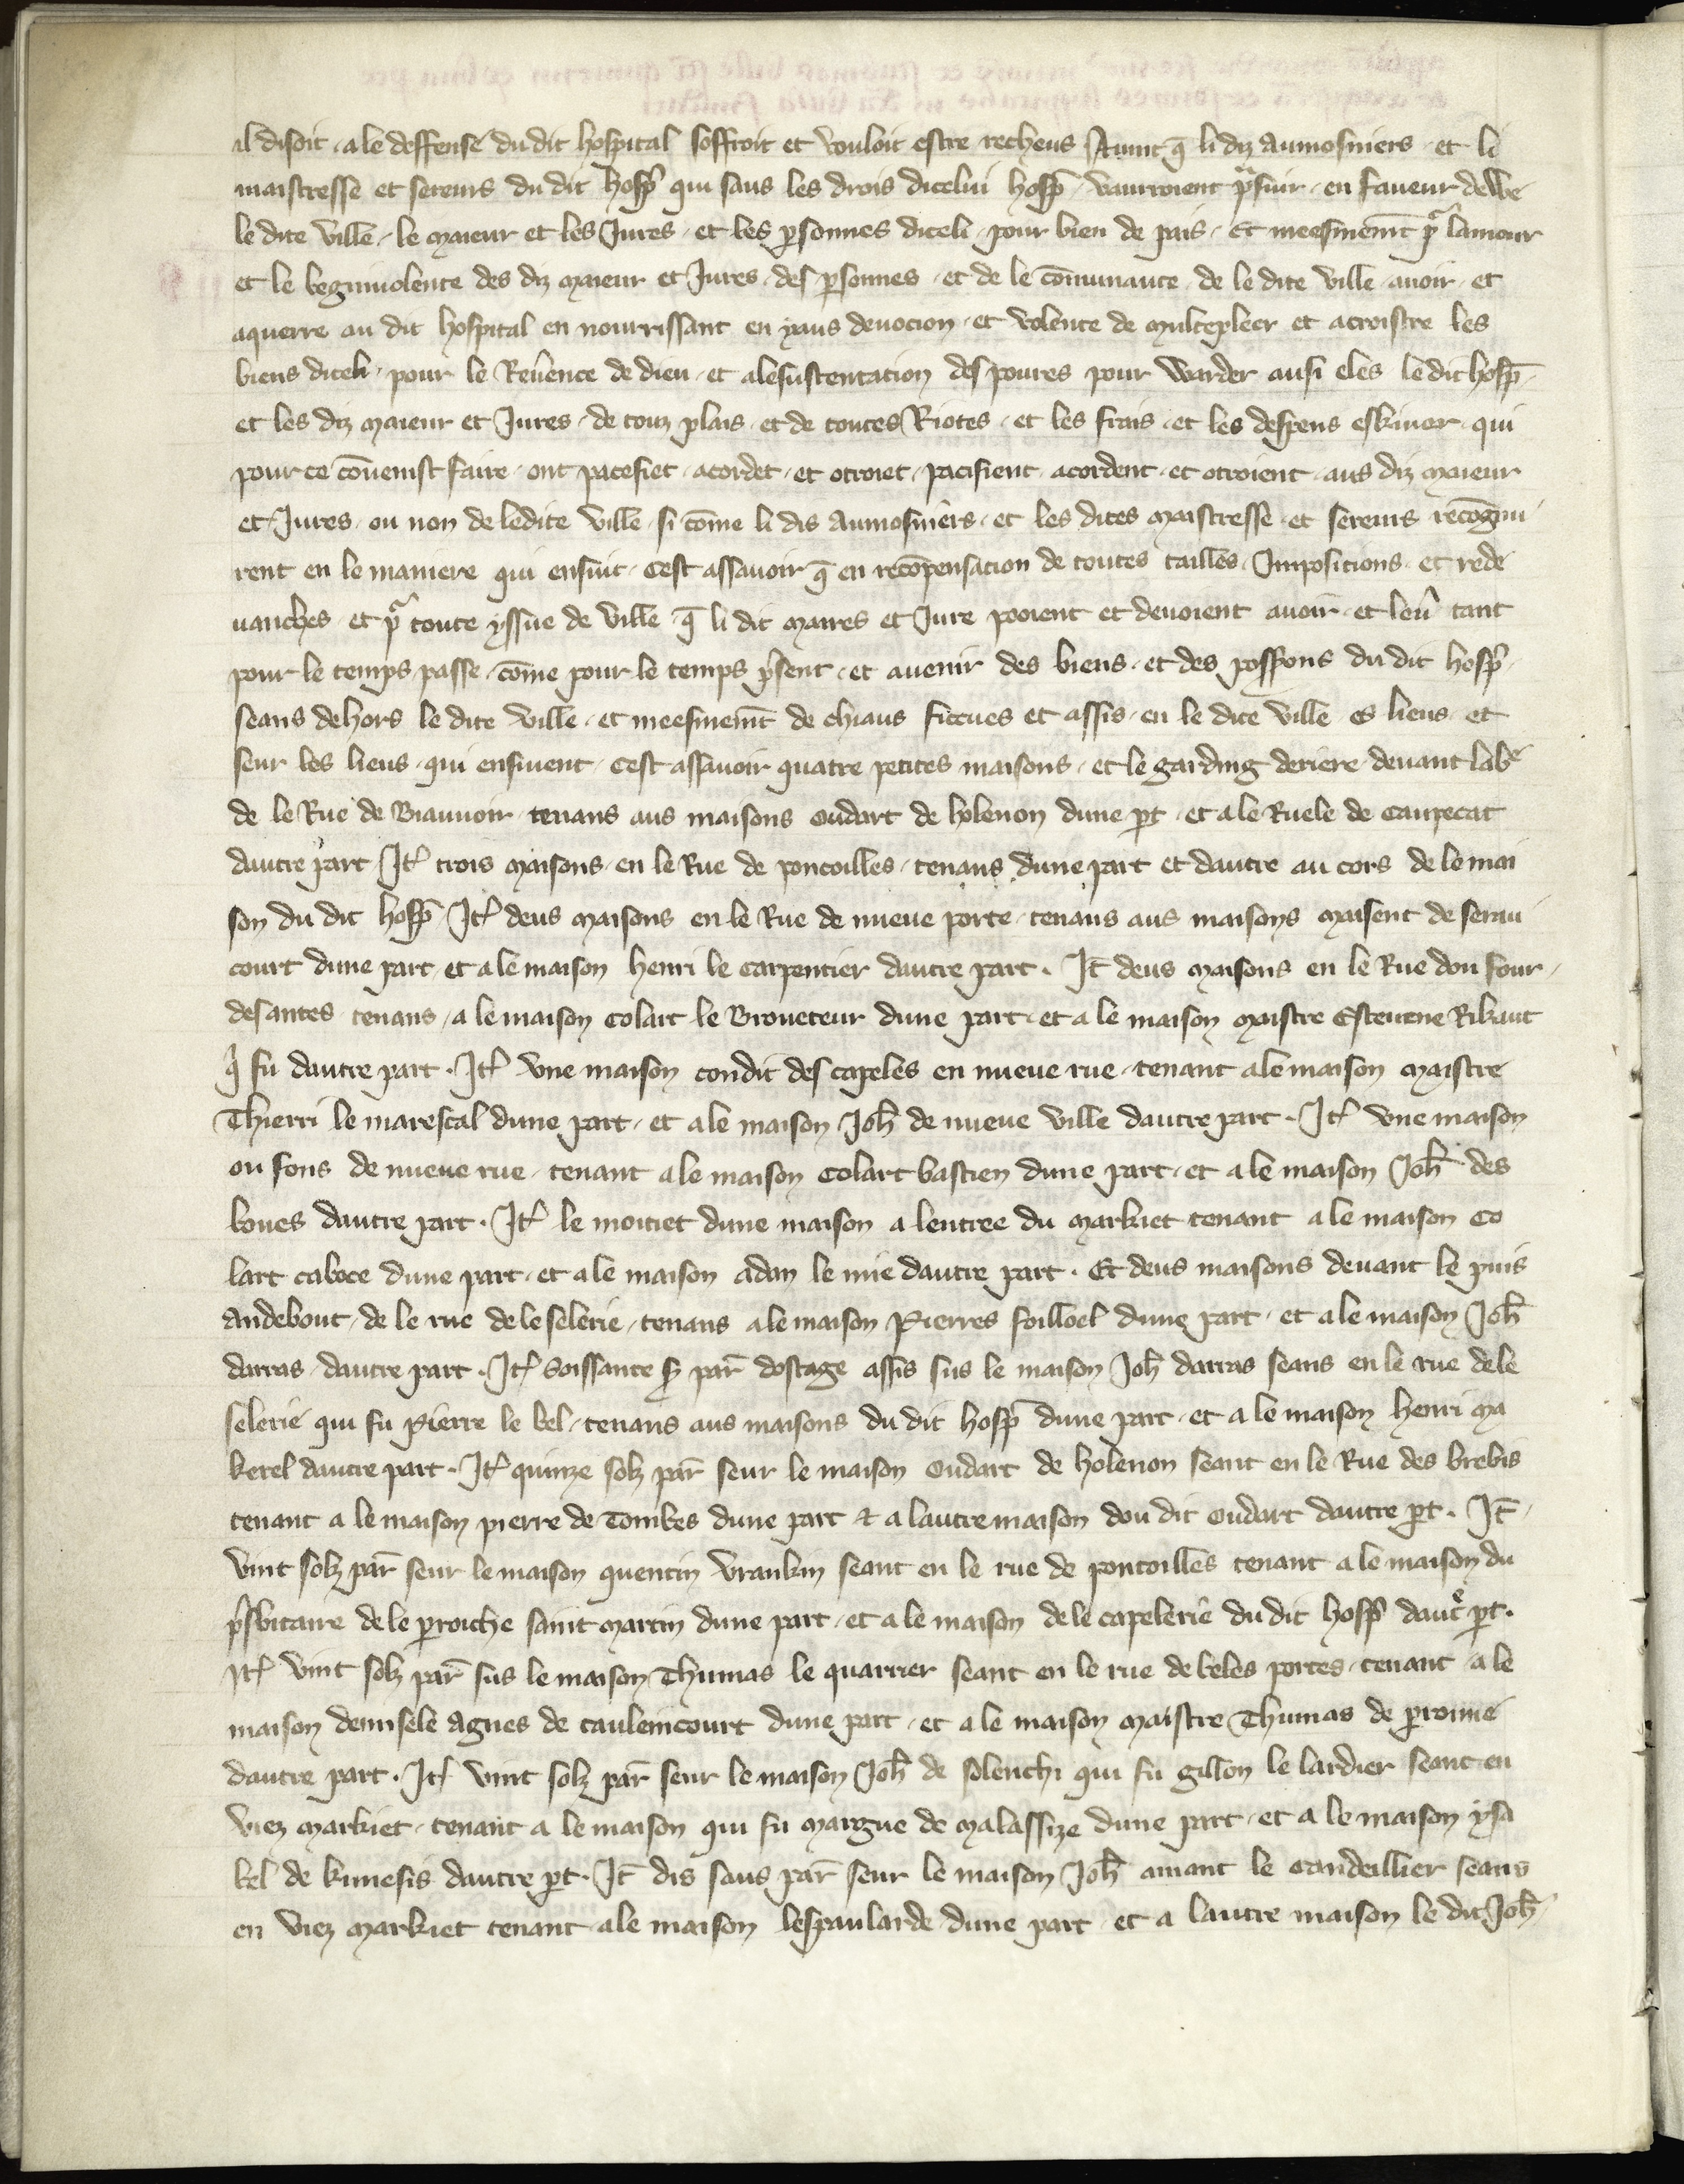 il disoit . a le deffense du dit hospital soffroit et vouloit estre recheus Auint q̄ li diz aumosniers . et li
maistresse et sereurs du dit hosp̄ qui saus les drois dicelui hosp̄ . vaurroient p̄suir . en faueur de
le dite ville . le maieur et les Jures . et les ꝑsonnes diceli . pour bien de pais . Et meesmem̄t pͬ lamour
et le beginuolence des diz maieur et Jures . des ꝑsonnes . et de le cōmunaute . de le dite ville . auoir . et
aquerre au dit hospital en nourrissant en yaus deuocion . et volente de multeplier et acroistre les
biens diceli . pour le Reu̅ence de dieu . et a le sustentacion des poures pour warder ausi eles le dit hosp̄ .
et les diz maieur et Jures . de touz plais . et de toutes Riotes . et les frais . et les despens eskiuer . qui
pour ce cōuenist faire . ont pacefiet . acordet . et otroiet . pacifient . acordent . et otroient . aus diz maieur
et Jures . ou non de le dite ville . si cōme li dis aumosniers . et les dites maistresse . et sereurs recōgnu
rent en le maniere qui ensuit . Cest assauoir q̄ en recōpensacion de toutes tailles . Jmposicions . et rede
uanches . et pͬ toute yssue de ville q̄ li dit maires et Jure pooient et deuoient auoir . et leū tant
pour le temps passe . cōme pour le temps p̄sent . et auenir des biens . et des poss̄ons du dit hosp̄ .
seans dehors le dite ville . et meesmem̄t de chiaus situes et assis . en le dite ville es lieus . et
seur les lieus . qui ensiuent . Cest assauoir quatre petites maisons . et le garding deriere deuant lab̄
de le Rue de Biauuoir tenans aus maisons oudart de holenon dune ꝑt . et a le Ruele de Caupecat
dautre part . Jt̄ trois maisons . en le Rue de pontoilles . tenans dune part et dautre au cors de le mai
son du dit hosp̄ . Jt̄ deus maisons en le Rue de nueue porte . tenans aus maisons maisent de serau
court dune part . et a le maison henri le carpentier dautre part . Jt̄ deus maisons en le Rue dou four .
des antes tenans . a le maison Colart le Broueteur dune part . et a le maison maistre Esteuene Rikaut
q̇ fu dautre part . Jt̄ vne maison condit des capeles en nueue rue . tenant a le maison maistre
Thierri le marescal dune part . et a le maison Joh̄ de nueue ville dautre part . Jt̄ vne maison
ou fons de nueue rue . tenant a le maison Colart bastien dune part . et a le maison Joh̄ des
boues dautre part . Jt̄ le moitiet dune maison a lentree du markiet tenant a le maison Co
lart caboce dune part . et a le maison adan le mie dautre part . Et deus maisons deuant le puis
andebout . de le rue de le selerie . tenans a le maison Pierres foilloel dune part . et a le maison Joh̄
darras dautre part . Jt̄ Soissante s̄ par̄ dostage assis sus le maison Joh̄ darras seans en le rue de le
selerie qui fu Pierre le bel . tenans aus maisons du dit hosp̄ dune part . et a le maison henri ma
kerel dautre part . Jt̄ quinze solz par̄ seur le maison oudart de holenon seant en le Rue des brebis
tenant a le maison pierre de Tombes dune part & a lautre maison dou dit oudart dautre ꝑt . Jt̄ .
vint solz par̄ seur le maison quentin vrankin seant en le rue de pontoilles tenant a le maison du
p̄sbitaire de le ꝑroiche saint martin dune part . et a le maison de le capelerie du dit hosp̄ daut̄ ꝑt .
Jt̄ vint solz par̄ sus le maison Thumas le quarrier seant en le rue de beles portes . tenant a le
maison demisele agnes de caulenicourt dune part . et a le maison maistre Thumas de ꝑronne
dautre part . Jt̄ vint solz par̄ seur le maison Joh̄ de solenchi qui fu gillon le lardier seant en
viez markiet . tenant a le maison qui fu margue de malassize dune part . et a le maison ysa
bel de kimesis dautre ꝑt . Jt̄ dis saus par̄ seur le maison Joh̄ amant le candeillier seans
en viez markiet tenant a le maison lespaularde dune part et a lautre maison le dit Joh̄